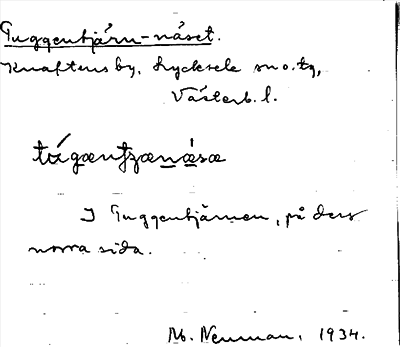 Tuggentjärn-näset.
Knaftens by, Lycksele sn o. tg,
Västerb. l.
I Tuggentjärnen, på dess
norra sida.
M. Neuman, 1934.